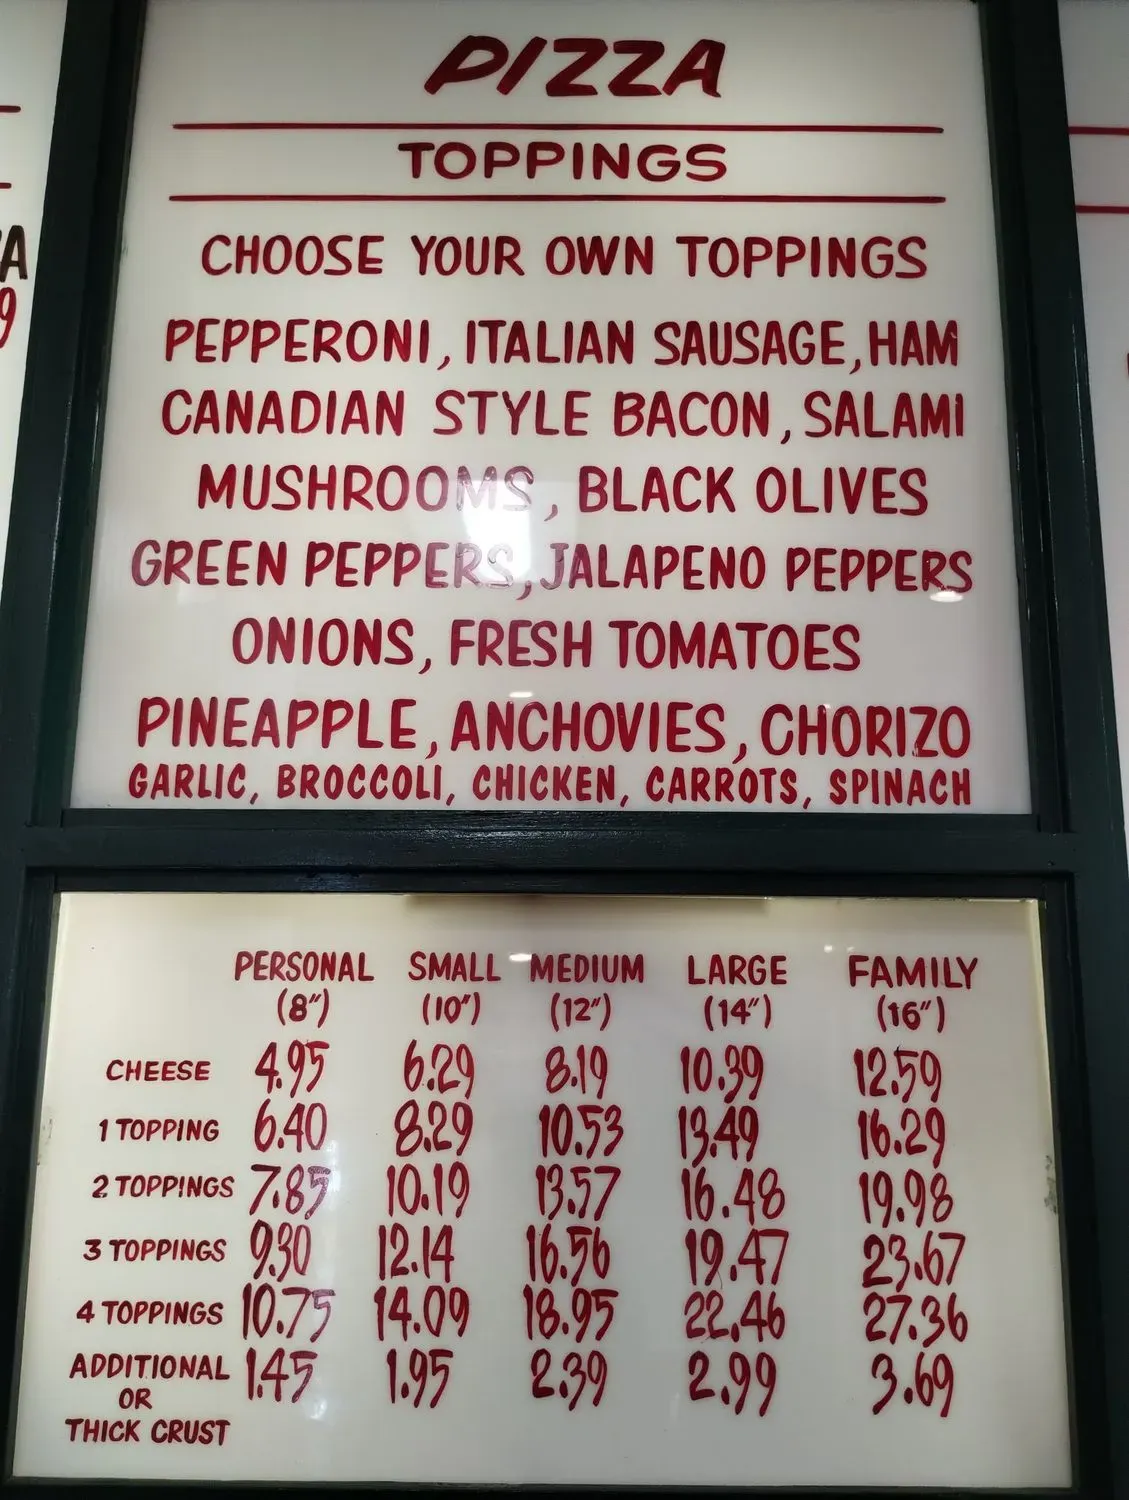 PIZZA
TOPPINGS
CHOOSE YOUR OWN TOPPINGS
PEPPERONI, ITALIAN SAUSAGE, HAM
CANADIAN STYLE BACON, SALAMI
MUSHROOMS, BLACK OLIVES
GREEN PEPPERS, JALAPENO PEPPERS
ONIONS, FRESH TOMATOES
PINEAPPLE, ANCHOVIES, CHORIZO
GARLIC, BROCCOLI, CHICKEN, CARROTS, SPINACH
PERSONAL SMALL MEDIUM LARGE FAMILY
(8") (10") (12") (14") (16")
CHEESE 4.95 6.29 8.19 10.39 12.59
1 TOPPING 6.40 8.29 10.53 13.49 16.29
2 TOPPINGS 7.85 10.19 13.57 16.48 19.98
3 TOPPINGS 9.30 12.14 16.56 19.47 23.67
4 TOPPINGS 10.75 14.09 18.95 22.46 27.36
ADDITIONAL 1.45 1.95 2.39 2.99 3.69
OR
THICK CRUST